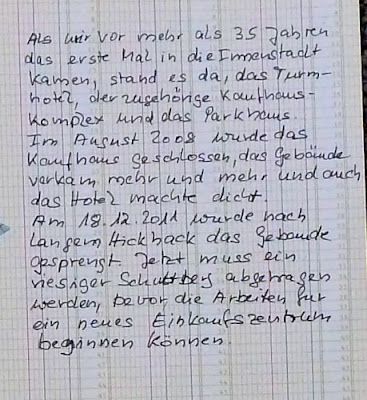 Als wir vor mehr als 35 Jahren
das erste Mal in die Innenstadt
kamen, stand es da, das Turm-
hotel, der zugehörige Kaufhaus-
komplex und das Parkhaus.
Im August 2008 wurde das
Kaufhaus geschlossen, das Gebäude
verkam mehr und mehr und auch
das Hotel machte dicht.
Am 18.12.2011 wurde nach
langem Hickhack das Gebäude
gesprengt. Jetzt muss ein
riesiger Schuttberg abgetragen
werden, bevor die Arbeiten für
ein neues Einkaufszentrum
beginnen können.